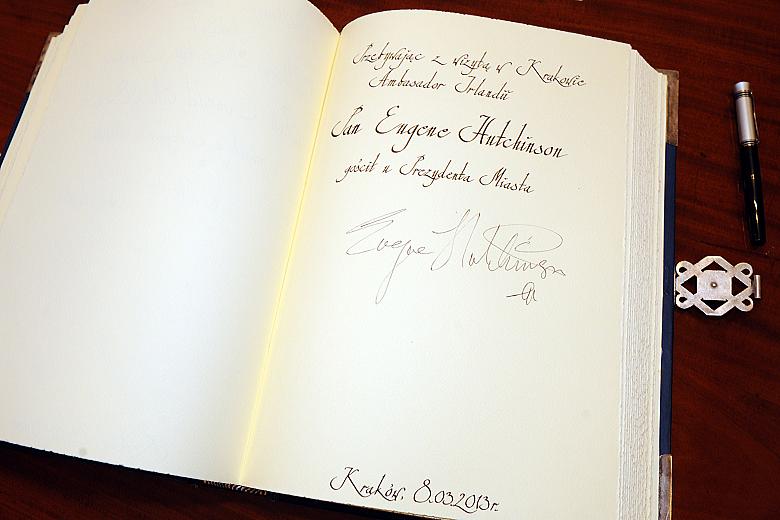 Przebywając z wizytą w Krakowie
Ambasador Irlandii
Pan Eugene Hutchinson
gościł u Prezydenta Miasta
Eugene Hutchinson
Kraków, 8.03.2013r.